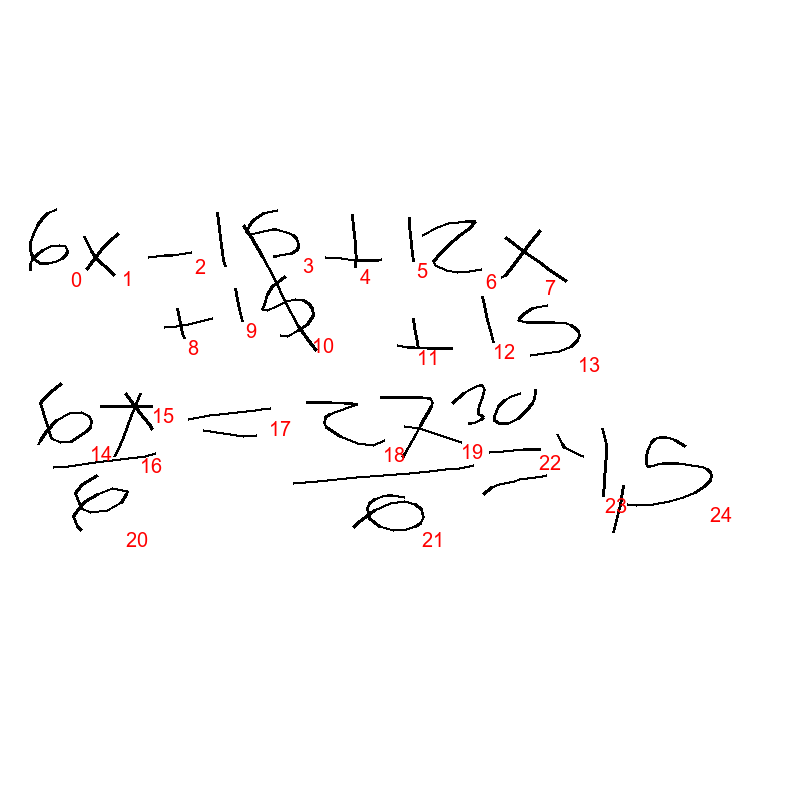 6x - 15 + 12x
+ 15 + 15
6x = 27 30 = 1,5
6 6
0 1 2 3 4 5 6 7
8 9 10 11 12 13
14 15 16 17 18 19 22 23 24
20 21